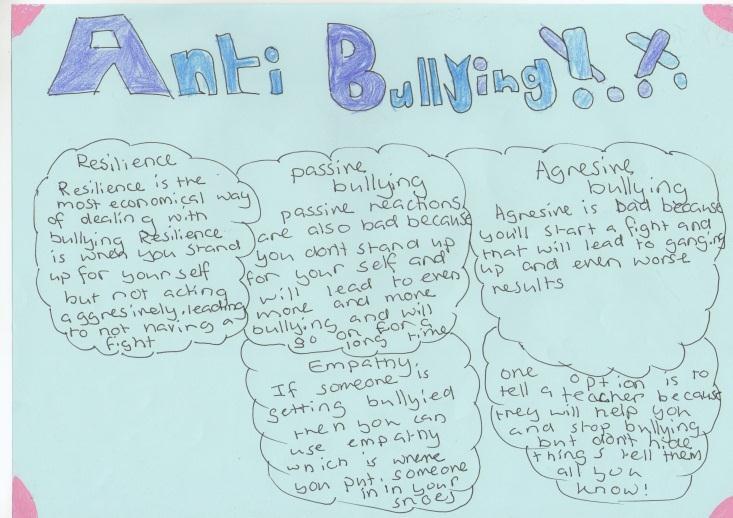 Anti Bullying!.x.
Resilience
Resilience is the
most economical way
of dealing with
bullying Resilience
is when you stand
up for your self
but not acting
aggresively.leading
to not having a
fight
passive
bullying
passive reactions
are also bad because
you don't stand up
for your self and
will lead to even
more and more
bullying and will
go on for a
long time
Agresive
bullying
Agresive is bad because
you'll start a fight and
that will lead to ganging
up and even worse
results
Empathy.
If someone is
getting bullyied
then you can
use empathy
which is where
you put someone
in in your
shoes
one option is to
tell a teacher because
they will help you
and stop bullying
but don't hide
things tell them
all you
know!